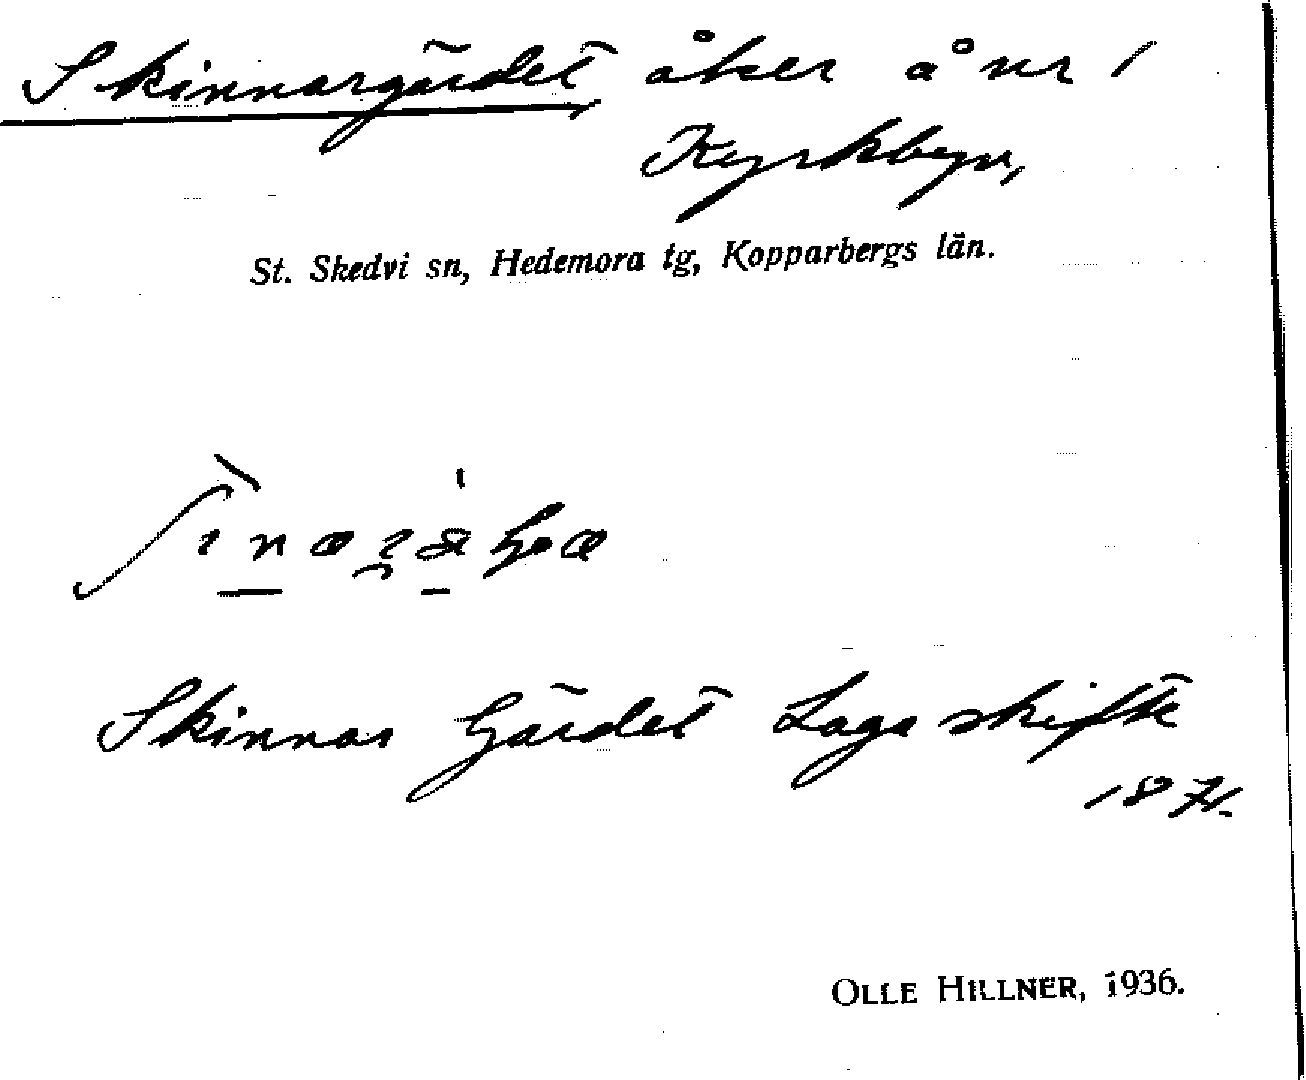 Skinnargärdet, åker å nr 1
Kyrkbyn,
St. Skedvi sn, Hedemora tg, Kopparbergs län.
Skinnar Gärdet Laga skifte
1871.
OLLE HILLNER, 1936.